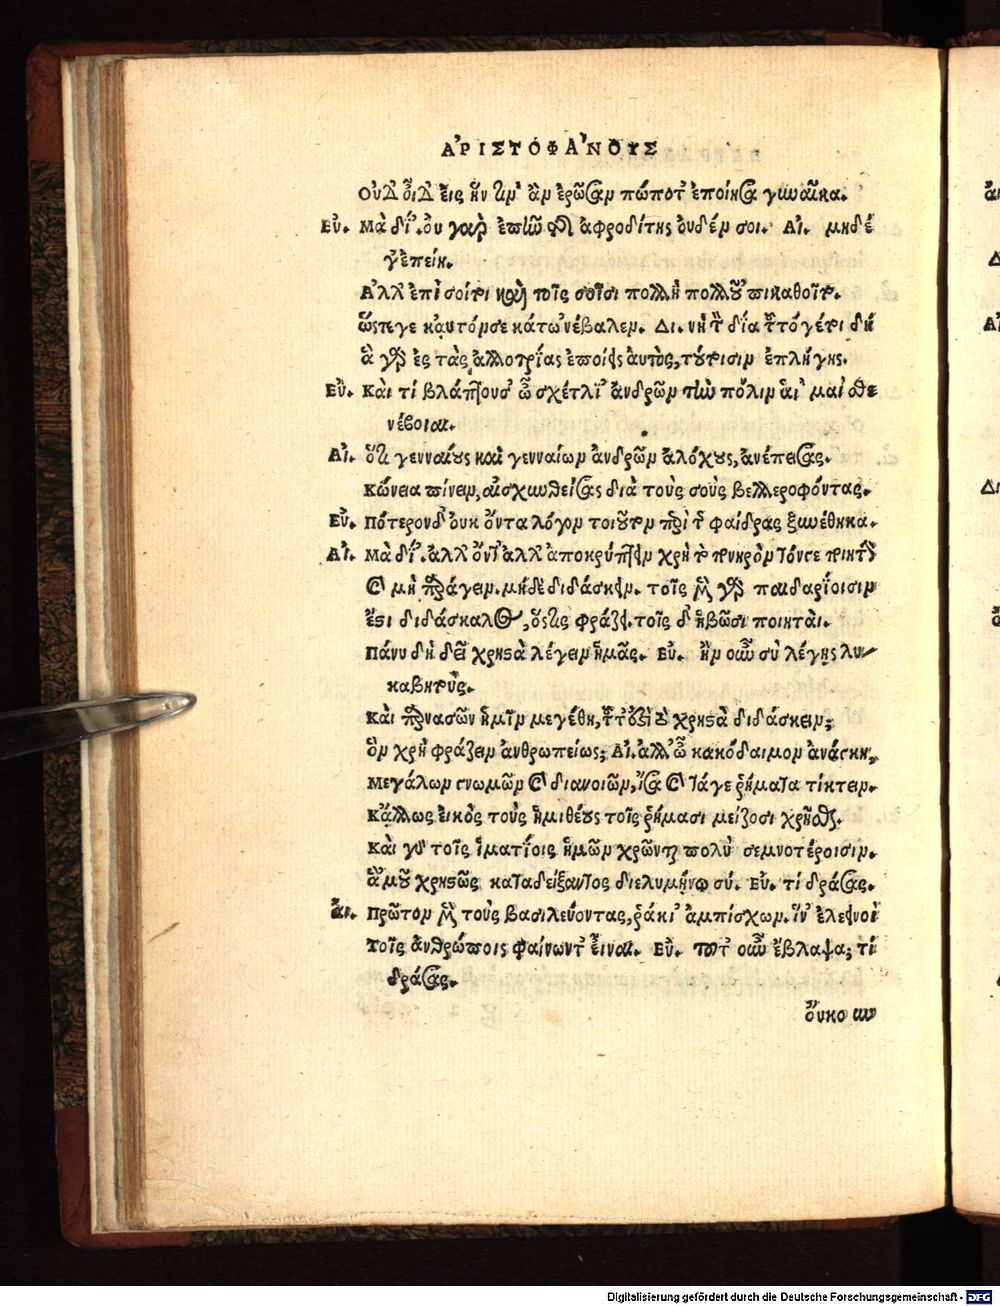 ἈΡΙΣΤΟΦΆΝΟΥΣ
Οὐδ' οἶδ' εἰς ἥν τιν' ἂν ἐρῶσαν πώποτ' ἐποίησα γυναῖκα.
Εὐ. Μὰ δί'. οὐ γὰρ ἐπῆν τῆς ἀφροδίτης οὐδέν σοι. Αἰ. μηδέ
γ' ἐπείη.
Ἀλλ' ἐπὶ σοί τοι καὶ τοῖς σοῖσι πολλὴ πολλοῦ πικαθοῖτο.
ὥστε γε καὐτόν σε κάτω 'νέβαλεν. Δι. νὴ τὸν δία τοῦτό γέ τοι δή
ἃ γὰρ ἐς τὰς ἀλλοτρίας ἐποίεις αὐτὸς, τούτοισιν ἐπλήγης.
Εὐ. Καὶ τί βλάπτουσ' ὦ σχέτλι' ἀνδρῶν τὴν πόλιν αἱ 'μαὶ σθε
νέβοιαι.
Αἰ. ὅτι γενναίους καὶ γενναίων ἀνδρῶν ἀλόχους, ἀνέπεισας.
Κώνεια πίνειν, αἰσχυνθείσας διὰ τοὺς σοὺς βελλεροφόντας.
Εὐ. Πότερον δ' οὐκ ὄντα λόγον τοιοῦτον περὶ τῆς φαίδρας ξυνέθηκα.
Αἰ. Μὰ δί'. ἀλλ' ὄντ' ἀλλ' ἀποκρύπτειν χρὴ τὸ πονηρὸν τόν γε ποιητὴν
καὶ μὴ παράγειν. μηδὲ διδάσκειν. τοῖς μὲν γὰρ παιδαρίοισιν
ἔστι διδάσκαλος, ὅστις φράζει. τοῖς δ' ἡβῶσι ποιηταὶ.
Πάνυ δὴ δεῖ χρηστὰ λέγειν ἡμᾶς. Εὐ. ἢν οὖν σὺ λέγῃς λυ-
καβηττοὺς.
Καὶ παρνασῶν ἡμῖν μεγέθη, τοῦτ' ἐστὶ τὸ χρηστὰ διδάσκειν;
ὃν χρὴ φράζειν ἀνθρωπείως; Αἰ. ἀλλ' ὦ κακόδαιμον ἀνάγκη,
Μεγάλων γνωμῶν καὶ διανοιῶν, ἴσα καὶ τά γε ῥήματα τίκτειν.
Κἄλλως εἰκὸς τοὺς ἡμιθέους τοῖς ῥήμασι μείζοσι χρῆσθαι.
Καὶ γὰρ τοῖς ἱματίοις ἡμῶν χρῶνται πολὺ σεμνοτέροισιν.
ἃ 'μοῦ χρηστῶς καταδείξαντος διελυμήνω σύ. Εὐ. τί δράσας.
Αἰ. Πρῶτον μὲν τοὺς βασιλεύοντας, ῥάκι' ἀμπίσχων. ἵν' ἐλεεινοὶ
Τοῖς ἀνθρώποις φαίνωντ' εἶναι. Εὐ. τοῦτ' οὖν ἔβλαψα; τί
δράσας.
οὔκουν
Digitalisierung gefördert durch die Deutsche Forschungsgemeinschaft - DFG